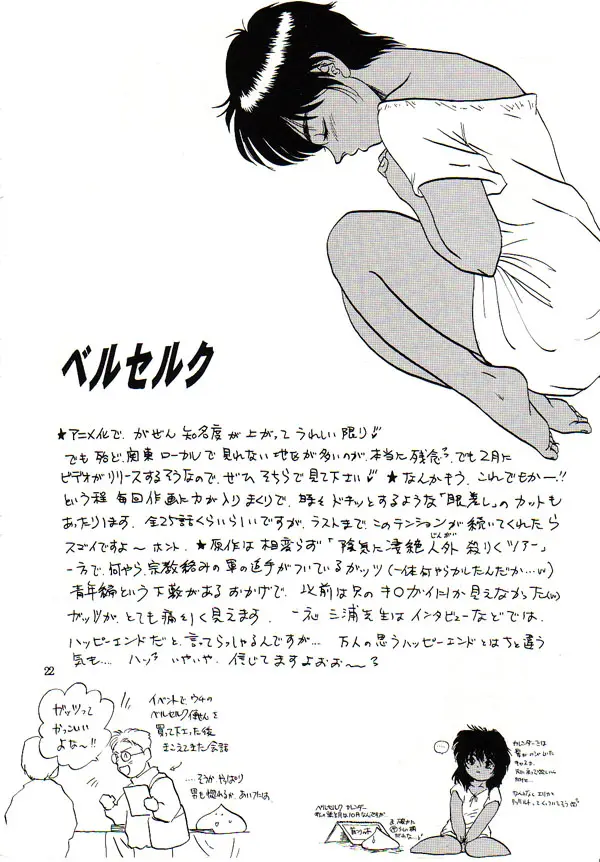 ベルセルク
★アニメ化で、がぜん知名度が上がってうれしい限り♡
でも殆ど、関東ローカルで見れない地区が多いのが、本当に残念。でも2月に
ビデオがリリースするそうなので、ぜひそちらで見て下さい♡ ★なんかもう、これでもかー!!
という程毎回作画に力が入りまくりで、時々ドキッとするような「眼差し」のカットも
あったりします。全25話くらいらしいですが、ラストまで、このテンションが続いてくれたら
スゴイですよ〜ホント。★原作は相変らず「陰気に凄絶人外殺りくツアー」
じんがい
一方で、何やら、宗教絡みの軍の追手がついているガッツ(一体何やらかしたんだか…)
青年編という下敷があるおかげで、以前は只のキ○ガイにしか見えなかった
ガッツが、とても痛々しく見えます。一応三浦先生はインタビューなどでは、
ハッピーエンドだと、言ってらっしゃるんですが… 万人の思うハッピーエンドとはちと違う
気も…. ハッ いやいや、信じてますよおぉ〜
22
ガッツって
かっこいい
よな〜!!
イベントで ウチの
ベルセルク便せん
を
買って下さった後
きこえてきた会話
……そうか やっぱり
男も惚れるか、あいつは。
…
ベルセルク カレンダー
カレンダーでは